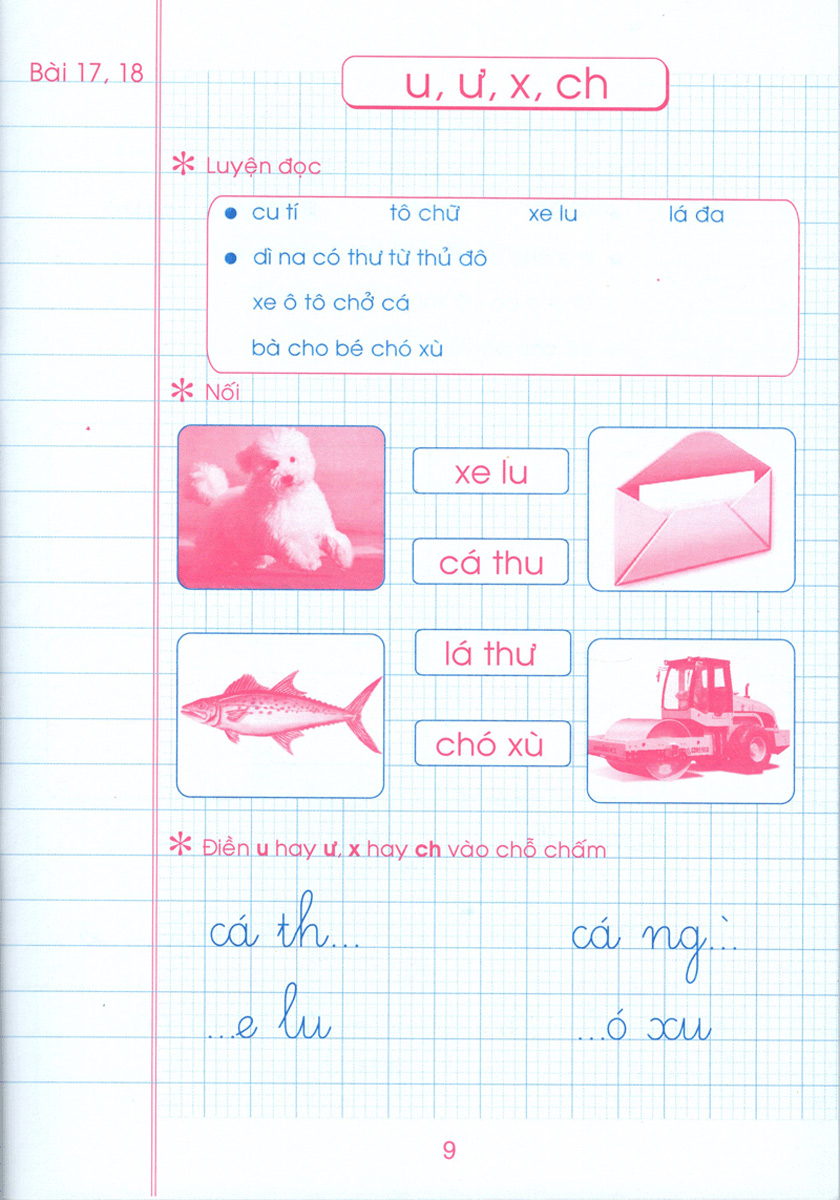 Bài 17, 18
u, ư, x, ch
* Luyện đọc
• cu tí tô chữ xe lu lá đa
• dì na có thư từ thủ đô
xe ô tô chở cá
bà cho bé chó xù
* Nối
xe lu
cá thu
lá thư
chó xù
* Điền u hay ư, x hay ch vào chỗ chấm
cá th... cá ng...̀
...e lu ...ó xu
9